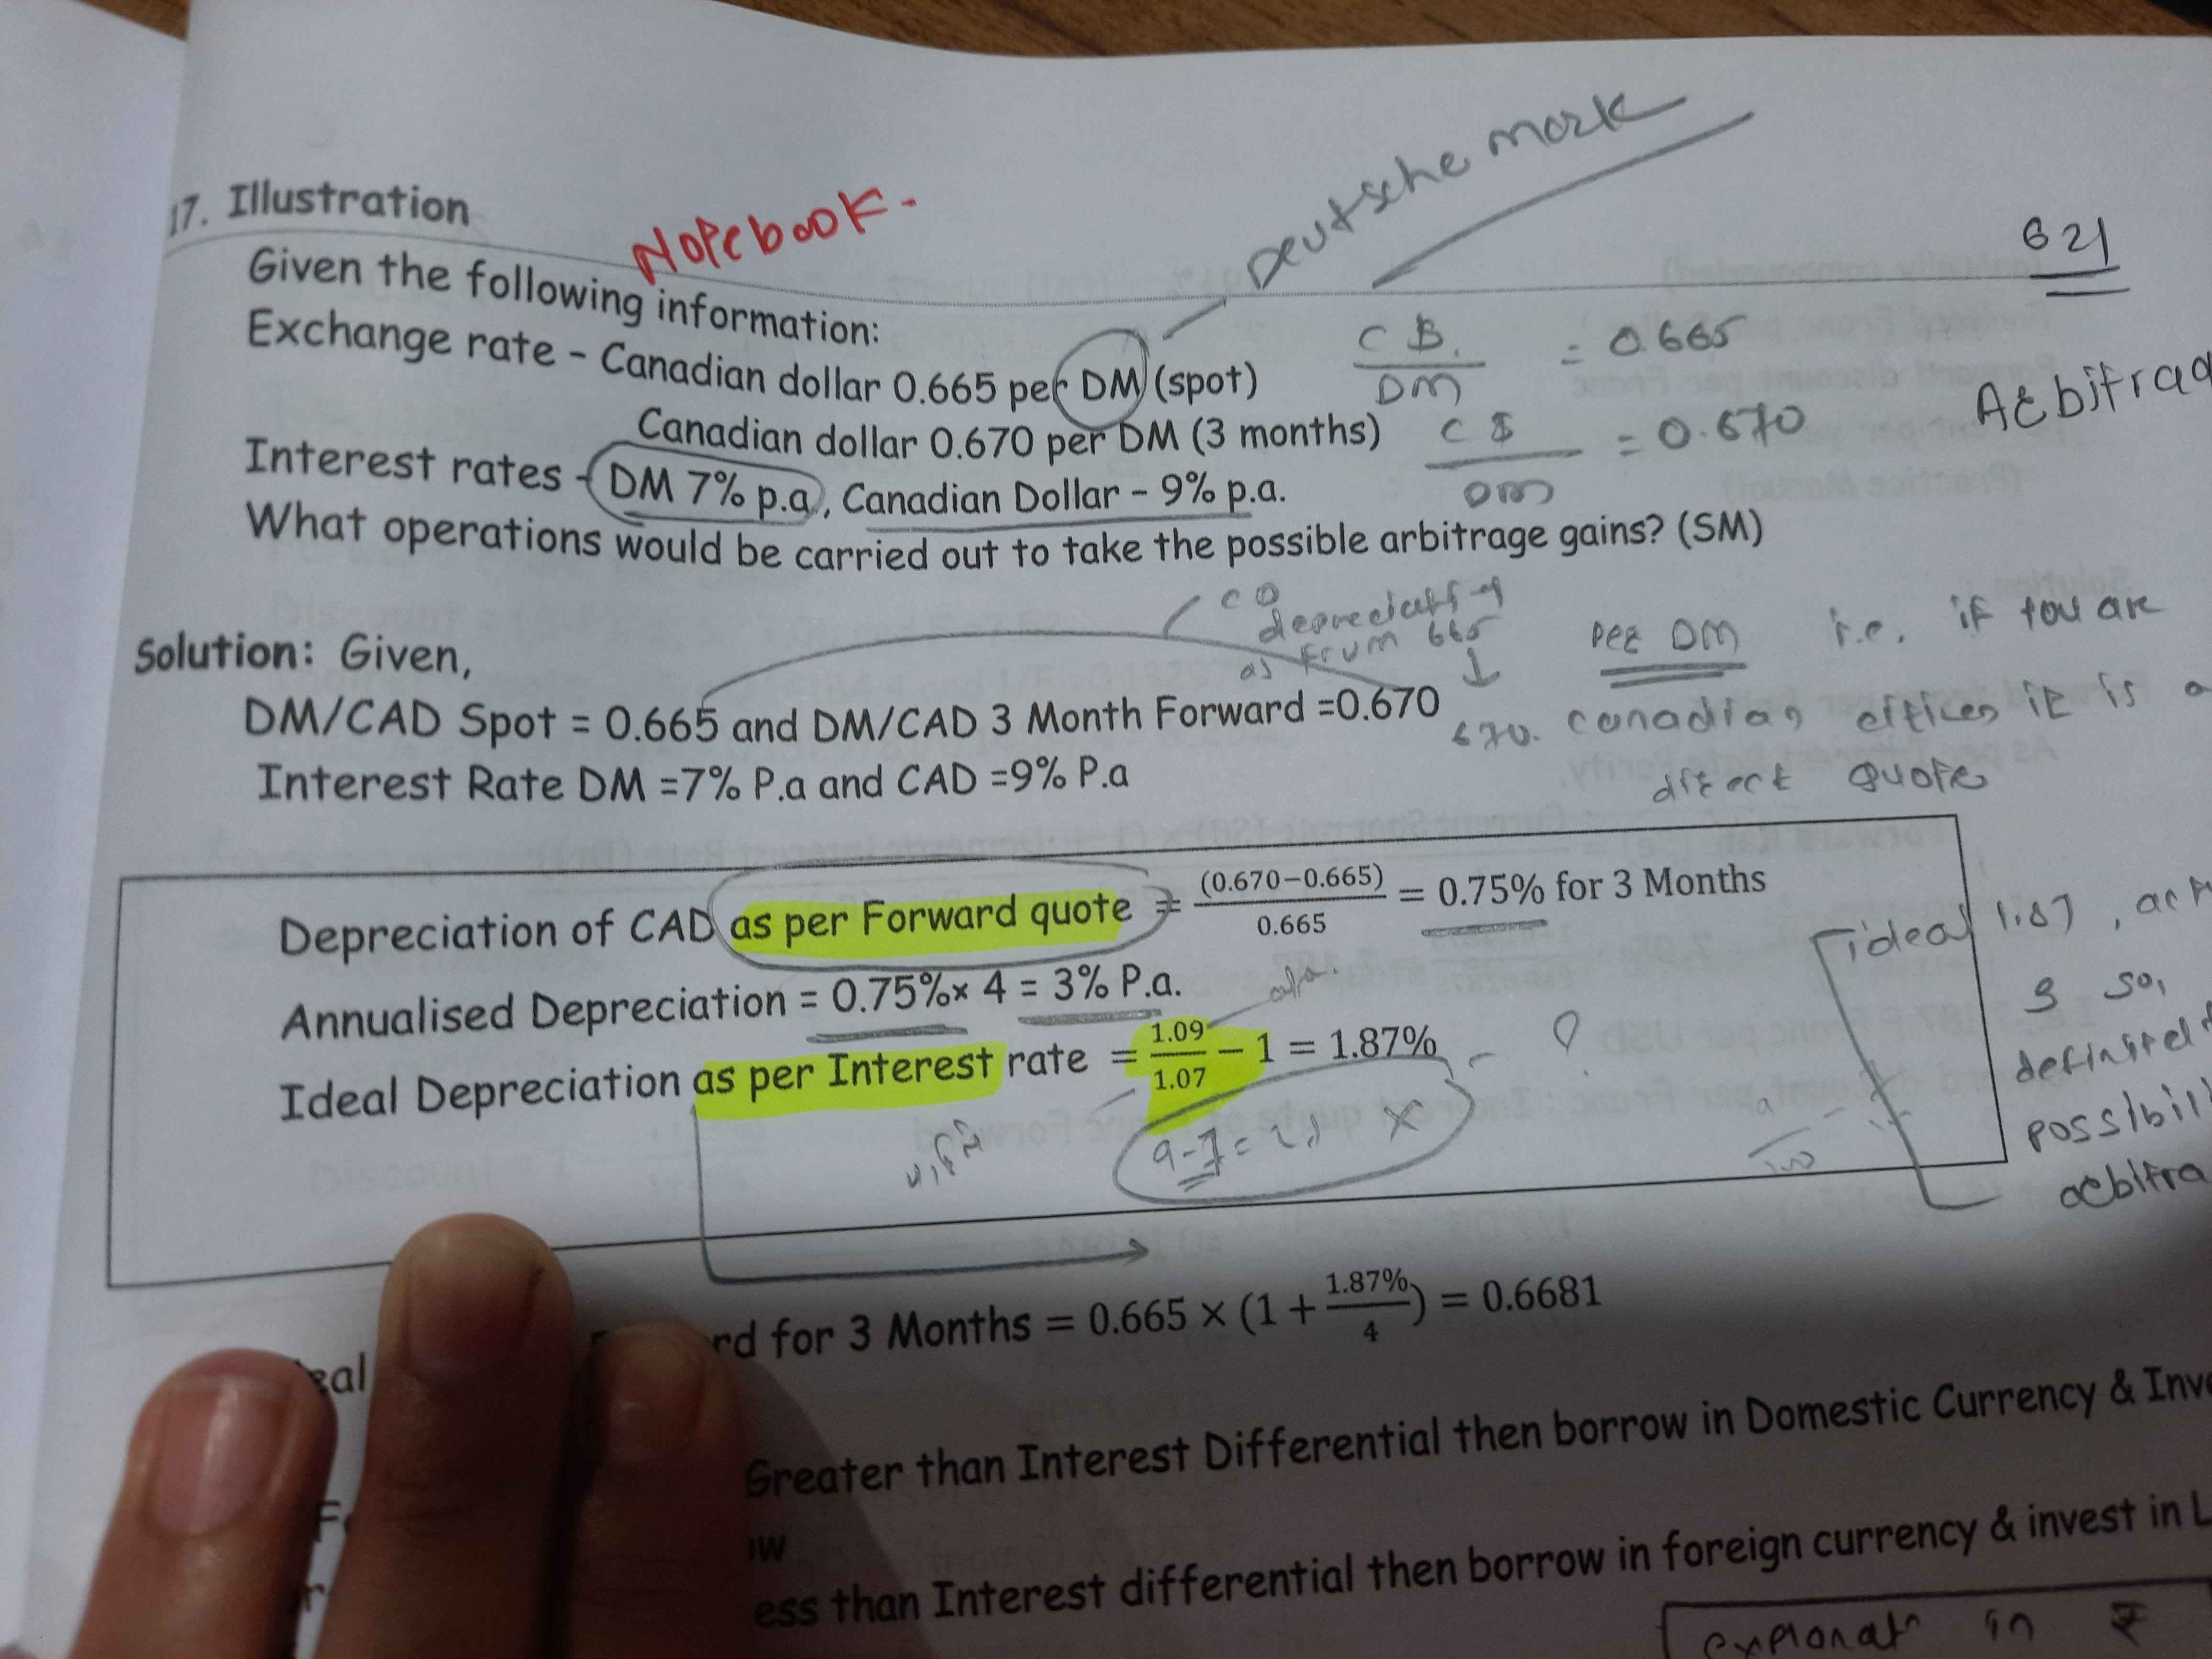 Deutsche mark
17. Illustration
Notebook-
621
Given the following information:
Exchange rate - Canadian dollar 0.665 per DM (spot)
C $ / DM = 0.665
Canadian dollar 0.670 per DM (3 months)
C $ / DM = 0.670
Interest rates - DM 7% p.a, Canadian Dollar - 9% p.a.
What operations would be carried out to take the possible arbitrage gains? (SM)
CD
as from 665
↓
670.
per DM i.e. if you are
it is a
direct quote
Solution: Given,
DM/CAD Spot = 0.665 and DM/CAD 3 Month Forward =0.670
Interest Rate DM =7% P.a and CAD =9% P.a
Depreciation of CAD as per Forward quote = (0.670−0.665)/0.665 = 0.75% for 3 Months
Annualised Depreciation = 0.75%× 4 = 3% P.a.
Ideal Depreciation as per Interest rate = 1.09/1.07 − 1 = 1.87%
9-7= X
ideal 1.87,
3 so,
rd for 3 Months = 0.665 × (1 + 1.87%/4) = 0.6681
Greater than Interest Differential then borrow in Domestic Currency & Inve
ess than Interest differential then borrow in foreign currency & invest in L
in ₹